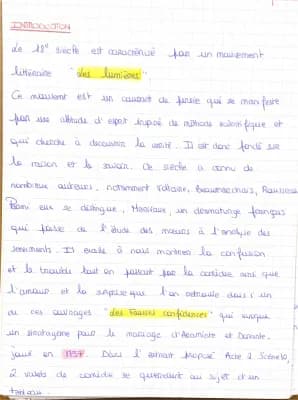 INTRODUCTION
Le 18e siècle est caractérisé par un mouvement
littéraire "les lumières".
Ce mouvement est un courant de pensée qui se manifeste
par une attitude d'esprit inspiré de méthode scientifique et
qui cherche à découvrir la vérité. Il est donc fondé sur
la raison et le savoir. Ce siècle a connu de
nombreux auteurs, notamment Voltaire, Beaumarchais, Rousseau
Parmi eux se distingue, Marivaux, un dramaturge français
qui passe de l'étude des mœurs à l'analyse des
sentiments. Il à nous montrer la confusion
et la trouble tout en passant par la comédie ainsi que
l'amour et la surprise que l'on retrouve dans un
de ces ouvrages "les Fausses confidences" qui évoque
un stratagème pour le mariage d'Araminte et Dorante.
joué en 1737. Dans l'extrait proposé Acte 2 Scène 10,
2 valets de comédie se querellent au sujet d'un
tableau.